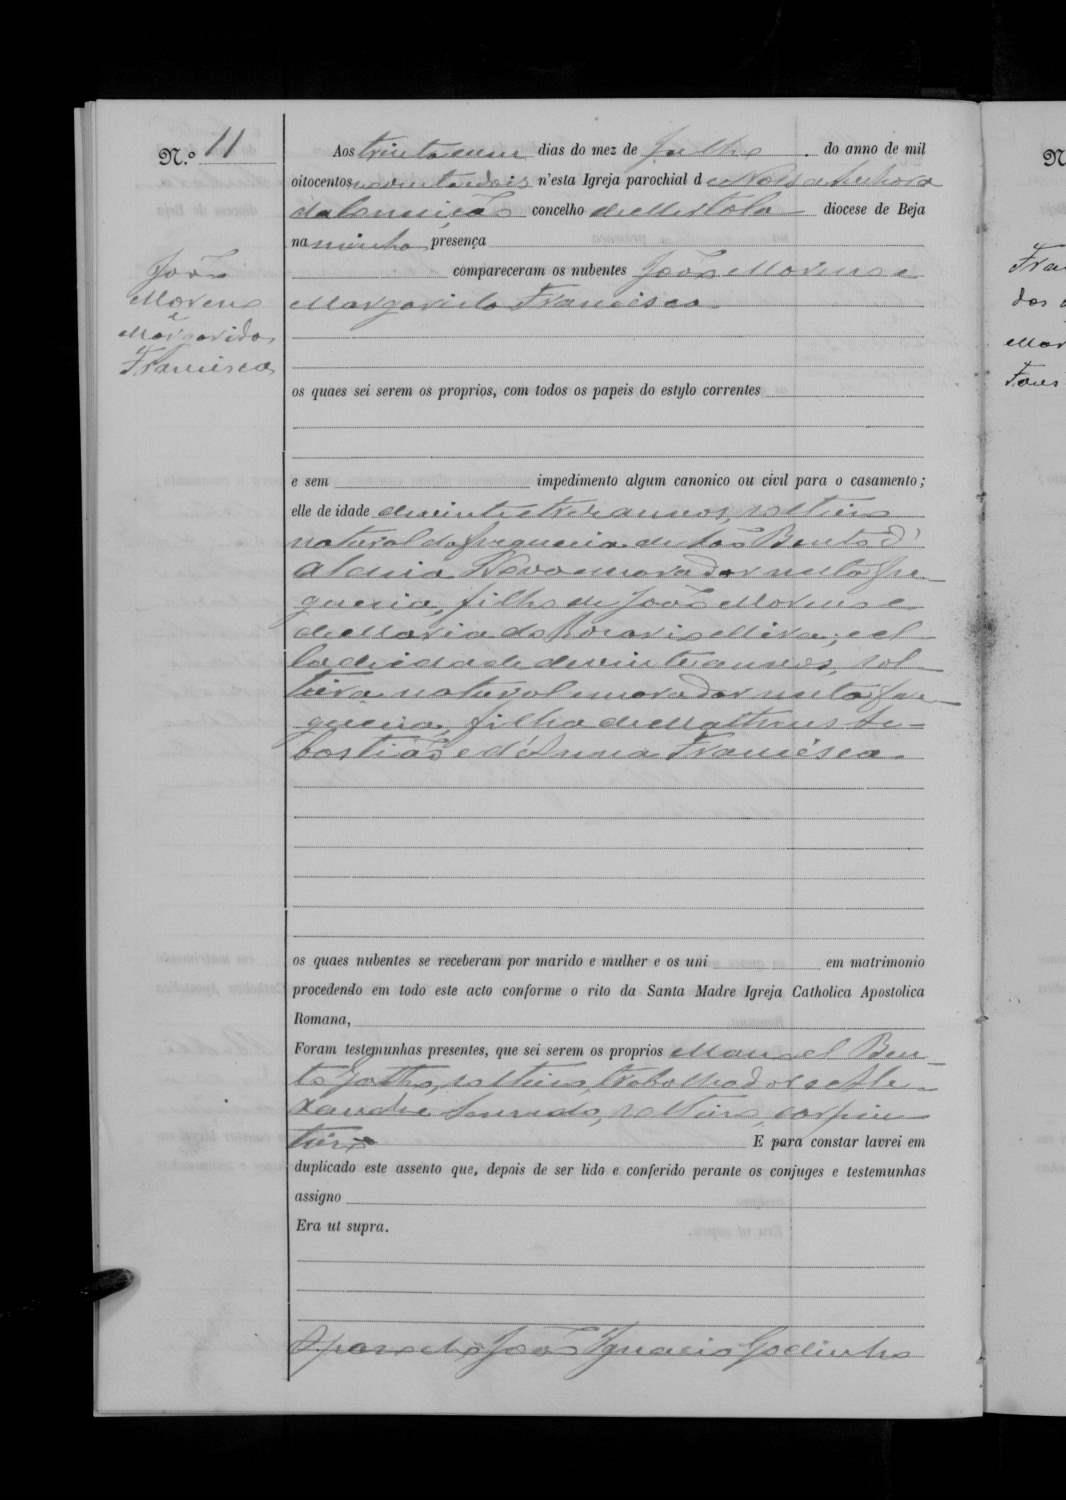 N.º 11
João
Moreno
e
Margarida
Francisca
Aos trinta e um dias do mez de Julho do anno de mil
oitocentos noventa e dois n'esta Igreja parochial de Nossa Senhora
da Conceição concelho de Mertola diocese de Beja
na minha presença
compareceram os nubentes João Moreno e
Margarida Francisca
os quaes sei serem os proprios, com todos os papeis do estylo correntes
e sem impedimento algum canonico ou civil para o casamento;
elle de idade de vinte e trez annos, solteiro
natural da freguezia de São Bento d'
Aldeia Nova e morador nesta fre-
guezia, filho de João Moreno e
de Maria do Rosario Mira; e el-
la de idade de vinte annos, sol-
teira natural e morador nesta fre-
guezia, filha de Matheus Se-
bastião e d'Anna Francisca.
os quaes nubentes se receberam por marido e mulher e os uni em matrimonio
procedendo em todo este acto conforme o rito da Santa Madre Igreja Catholica Apostolica
Romana,
Foram testemunhas presentes, que sei serem os proprios Manoel Ben-
to solteiro, trabalhador e Ale-
xandre solteiro, carpin
teiro E para constar lavrei em
duplicado este assento que, depois de ser lido e conferido perante os conjuges e testemunhas
assigno
Era ut supra.
O parocho João Ignacio Godinho
N
Fra
dos
Mar